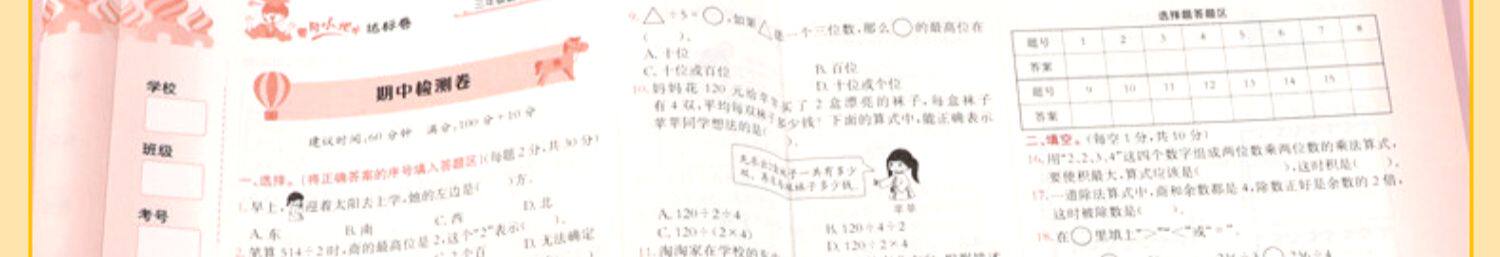 阳光小状元 达标卷
学校
班级
考号
期中检测卷
建议时间:60分钟 满分:100分+10分
一、选择。(将正确答案的序号填入答题区)(每题2分,共30分)
1.早上, 迎着太阳去上学,她的左边是( )方。
A.东 B.南 C.西 D.北
2.笔算514÷2时,商的最高位是2,这个“2”表示( )。
D.无法确定
9.△÷5=○,如果△是一个三位数,那么○的最高位在
( )。
A.十位 B.百位
C.十位或百位 D.十位或个位
10.妈妈花120元给苹苹买了2盒漂亮的袜子,每盒袜子
有4双,平均每双袜子多少钱?下面的算式中,能正确表示
苹苹同学想法的是( )。
先求出2盒袜子一共有多少
双,再求每双袜子多少钱。
苹苹
A.120÷2÷4 B.120÷4÷2
C.120÷(2×4) D.120÷2×4
11.淘淘家在学校的
选择题答题区
题号 1 2 3 4 5 6 7 8
答案
题号 9 10 11 12 13 14 15
答案
二、填空。(每空1分,共10分)
16.用“2、2、3、4”这四个数字组成两位数乘两位数的乘法算式,
要使积最大,算式应该是( ),这时积是( )。
17.一道除法算式中,商和余数都是4,除数正好是余数的2倍,
这时被除数是( )。
18.在○里填上“>”“<”或“=”。